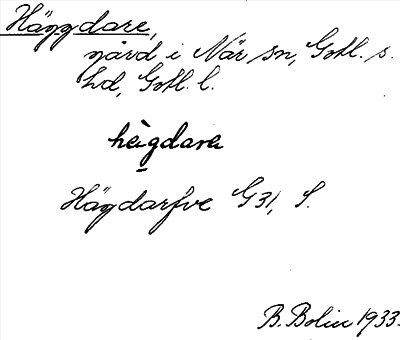 Häggdare,
gård i När sn, Gotl. s.
hd, Gotl. l.
hègdara
Hägdarfve G31, S.
B. Bolin 1933.